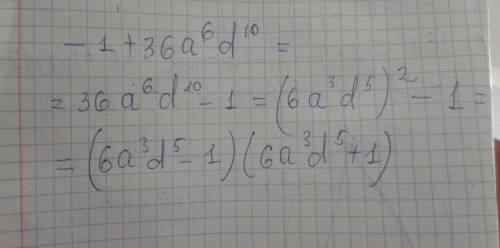 -1+36a⁶d¹⁰=
=36a⁶d¹⁰-1=(6a³d⁵)²-1=
=(6a³d⁵-1)(6a³d⁵+1)